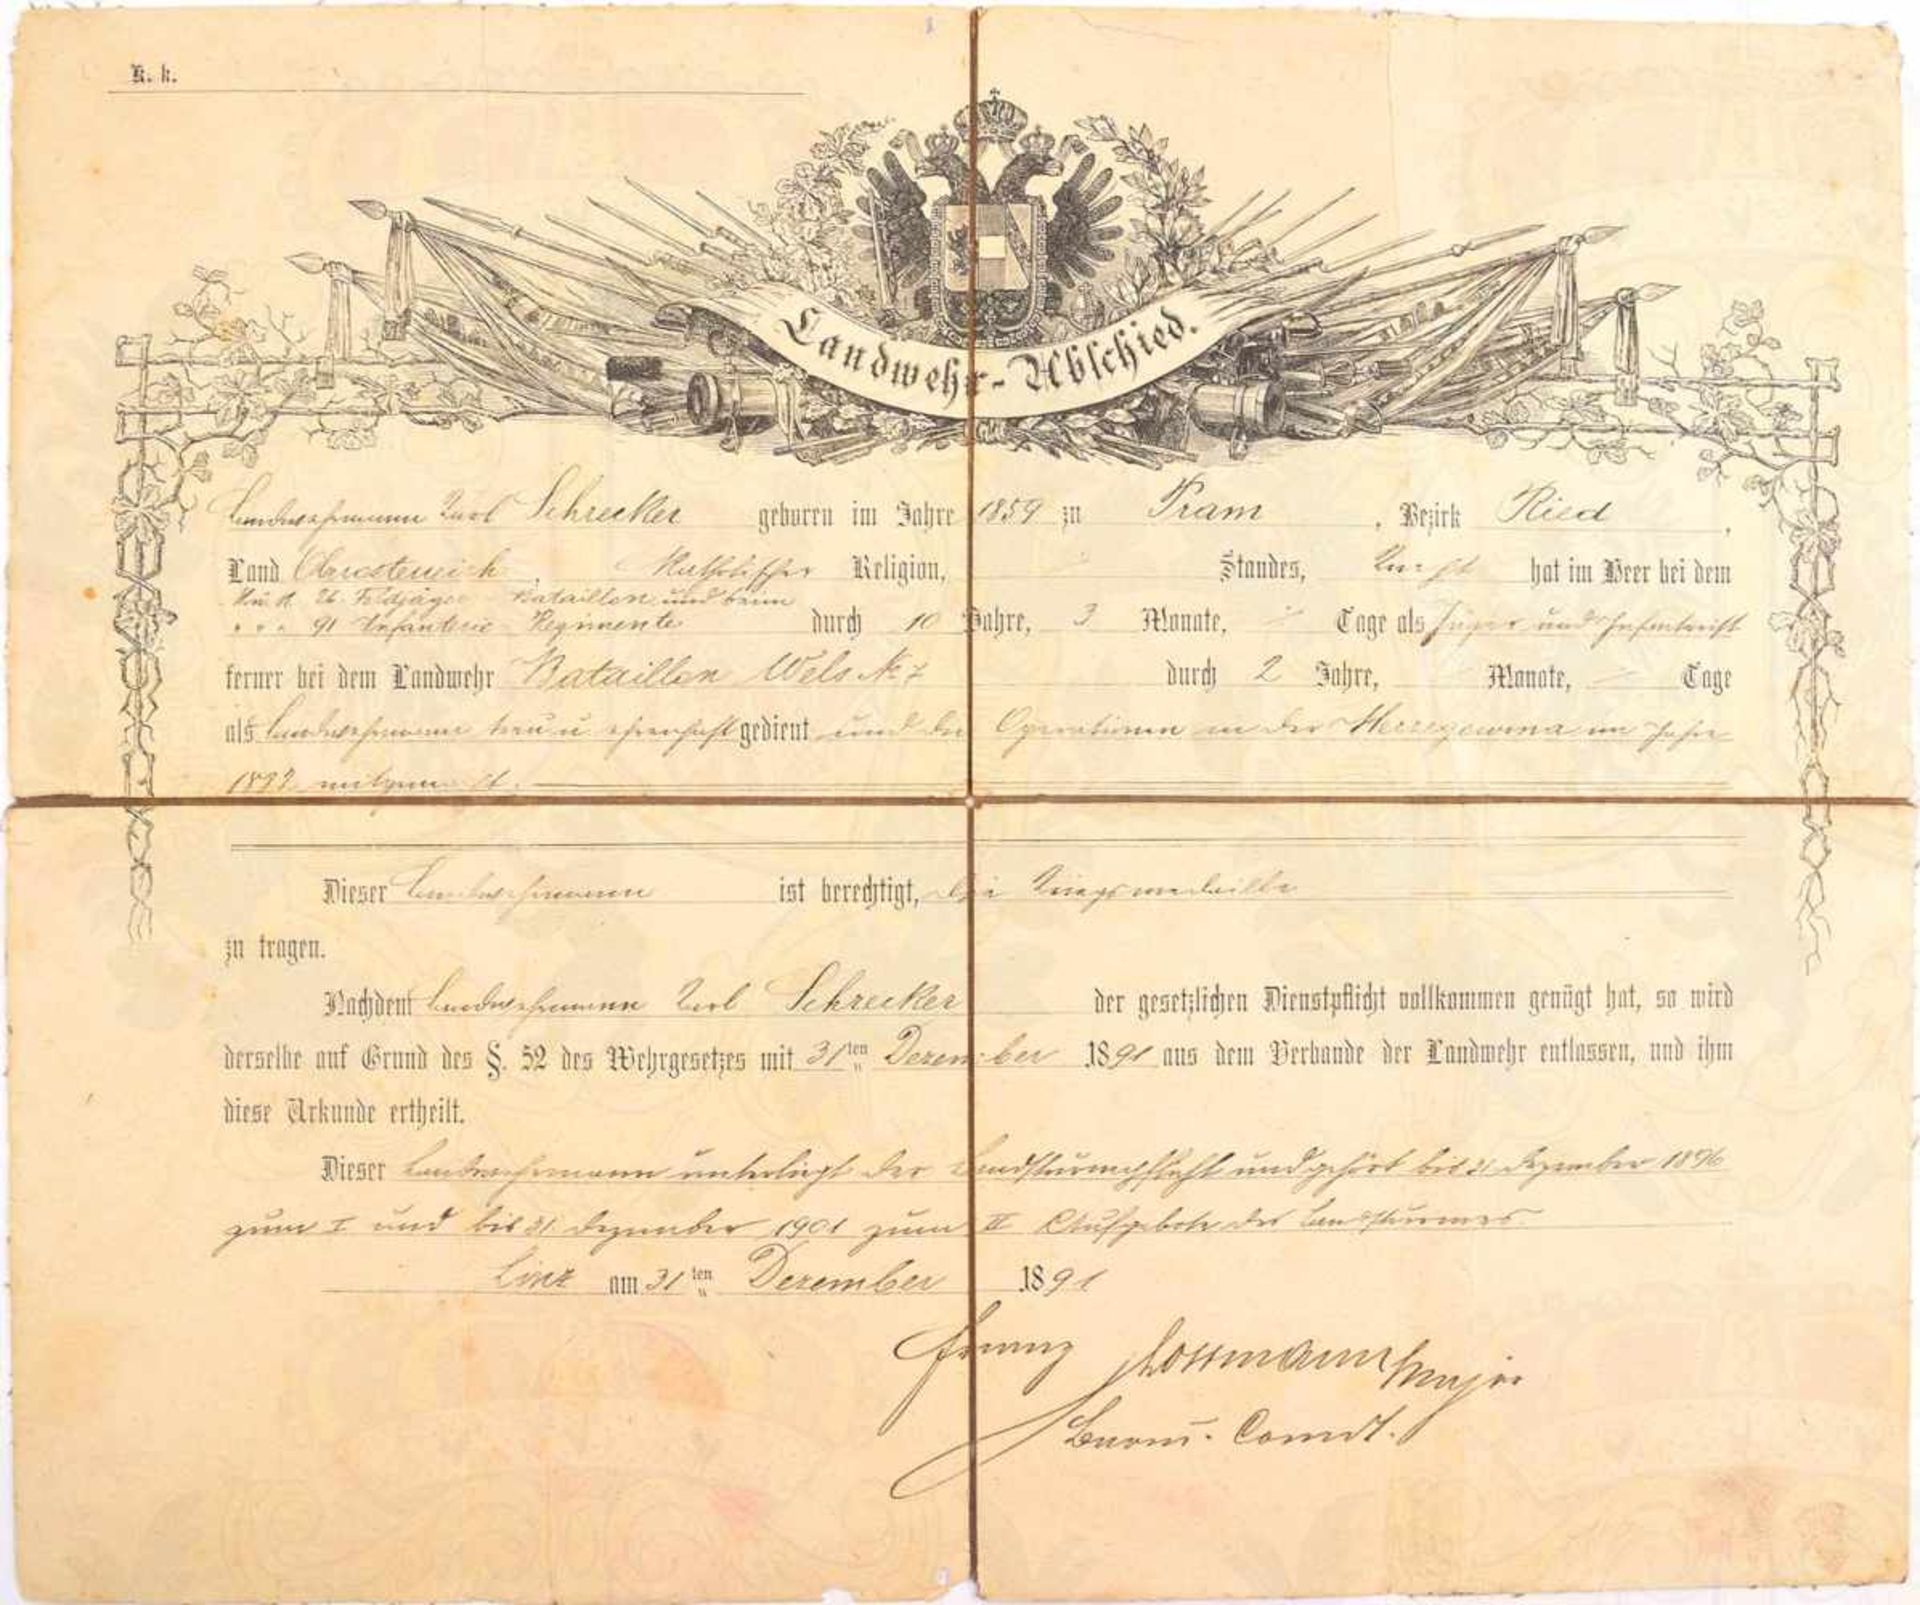 K. k.
Landwehr-Abschied.
Landwehrmann Karl Schrecker geboren im Jahre 1859 zu Pram, Bezirk Ried,
Land Oberösterreich, Katholischer Religion, Standes, hat im Heer bei dem
K u K 26. Feldjäger-Bataillon und beim
" " " 91 Infanterie Regimente durch 10 Jahre, 3 Monate, Tage als Jäger und Infanterist
ferner bei dem Landwehr Bataillon Wels No 7 durch 2 Jahre, Monate, Tage
als Landwehrmann treu u ehrenhaft gedient und die Operationen in der Herzegowina im Jahre
mitgemacht.
Dieser Landwehrmann ist berechtigt, die Kriegsmedaille
zu tragen.
Nachdem Landwehrmann Karl Schrecker der gesetzlichen Dienstpflicht vollkommen genügt hat, so wird
derselbe auf Grund des §. 52 des Wehrgesetzes mit 31ten Dezember 1891 aus dem Verbande der Landwehr entlassen, und ihm
diese Urkunde ertheilt.
Dieser Landwehrmann unterliegt der Landsturmpflicht und gehört bis 31 Dezember 1896
zum I und bis 31. Dezember 1901 zum II Aufgebote des Landsturmes.
Linz am 31ten Dezember 1891
Franz Major
Comdt.